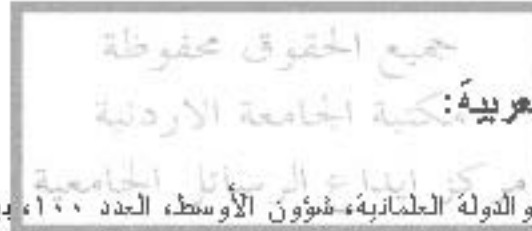 جميع الحقوق محفوظة
مكتبة الجامعة الاردنية
مركز ايداع الرسائل الجامعية
والدولة العلمانية، شؤون الأوسط، العدد ١٠٠،